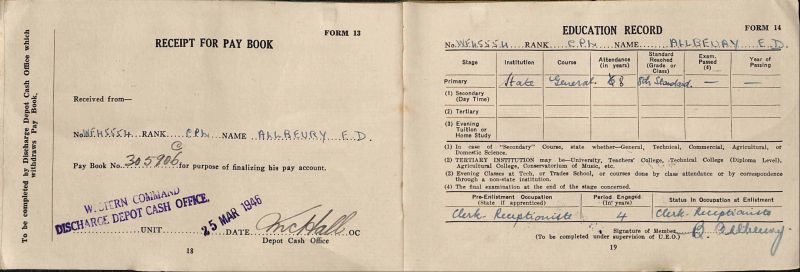 To be completed by Discharge Depot Cash Office which
withdraws Pay Book.
FORM 13
RECEIPT FOR PAY BOOK
Received from—
No. WF45554 RANK CPL NAME ALLBEURY E.D.
Pay Book No. 305906 C for purpose of finalizing his pay account.
WESTERN COMMAND
DISCHARGE DEPOT CASH OFFICE.
25 MAR 1946
UNIT DATE McHall OC
Depot Cash Office
18
EDUCATION RECORD FORM 14
No. WF45554 RANK CPL NAME ALLBEURY E.D.
Stage Institution Course Attendance (in years) Standard Reached (Grade or Class) Exam. Passed (4) Year of Passing
Primary State General 8 8th Standard — —
(1) Secondary (Day Time)
(2) Tertiary
(3) Evening Tuition or Home Study
(1) In case of "Secondary" Course, state whether—General, Technical, Commercial, Agricultural, or
Domestic Science.
(2) TERTIARY INSTITUTION may be—University, Teachers' College, Technical College (Diploma Level),
Agricultural College, Conservatorium of Music, etc.
(3) Evening Classes at Tech. or Trades School, or courses done by class attendance or by correspondence
through a non-state institution.
(4) The final examination at the end of the stage concerned.
Pre-Enlistment Occupation (State if apprenticed) Period Engaged (In years) Status in Occupation at Enlistment
Clerk Receptioniste 4 Clerk Receptioniste
Signature of Member Allbeury
(To be completed under supervision of U.E.O.)
19